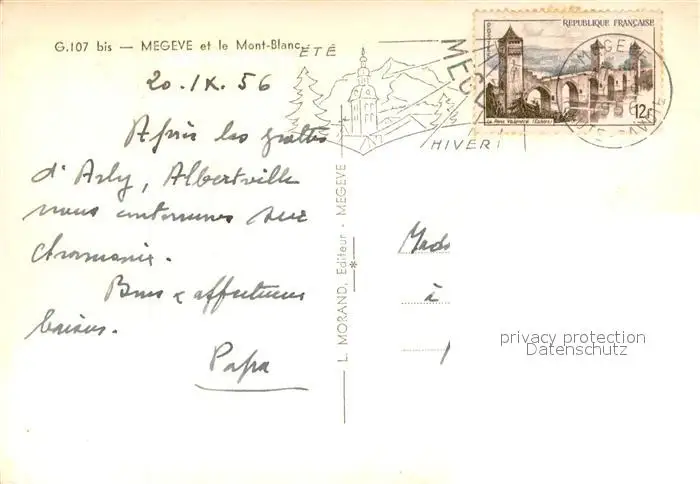 G.107 bis — MEGEVE et le Mont-Blanc
ÉTÉ
MEGÈ
HIVER
RÉPUBLIQUE FRANÇAISE
POSTES
12F
Le Pont Valentré (Cahors)
MEGÈVE
HTE-SAVOIE
20.IX.56
Après les grottes
d'Arly, Albertville
nous continuons sur
Bons & affectueux
baisers.
Papa
L. MORAND, Editeur - MEGEVE
Mad
à
privacy protection
Datenschutz